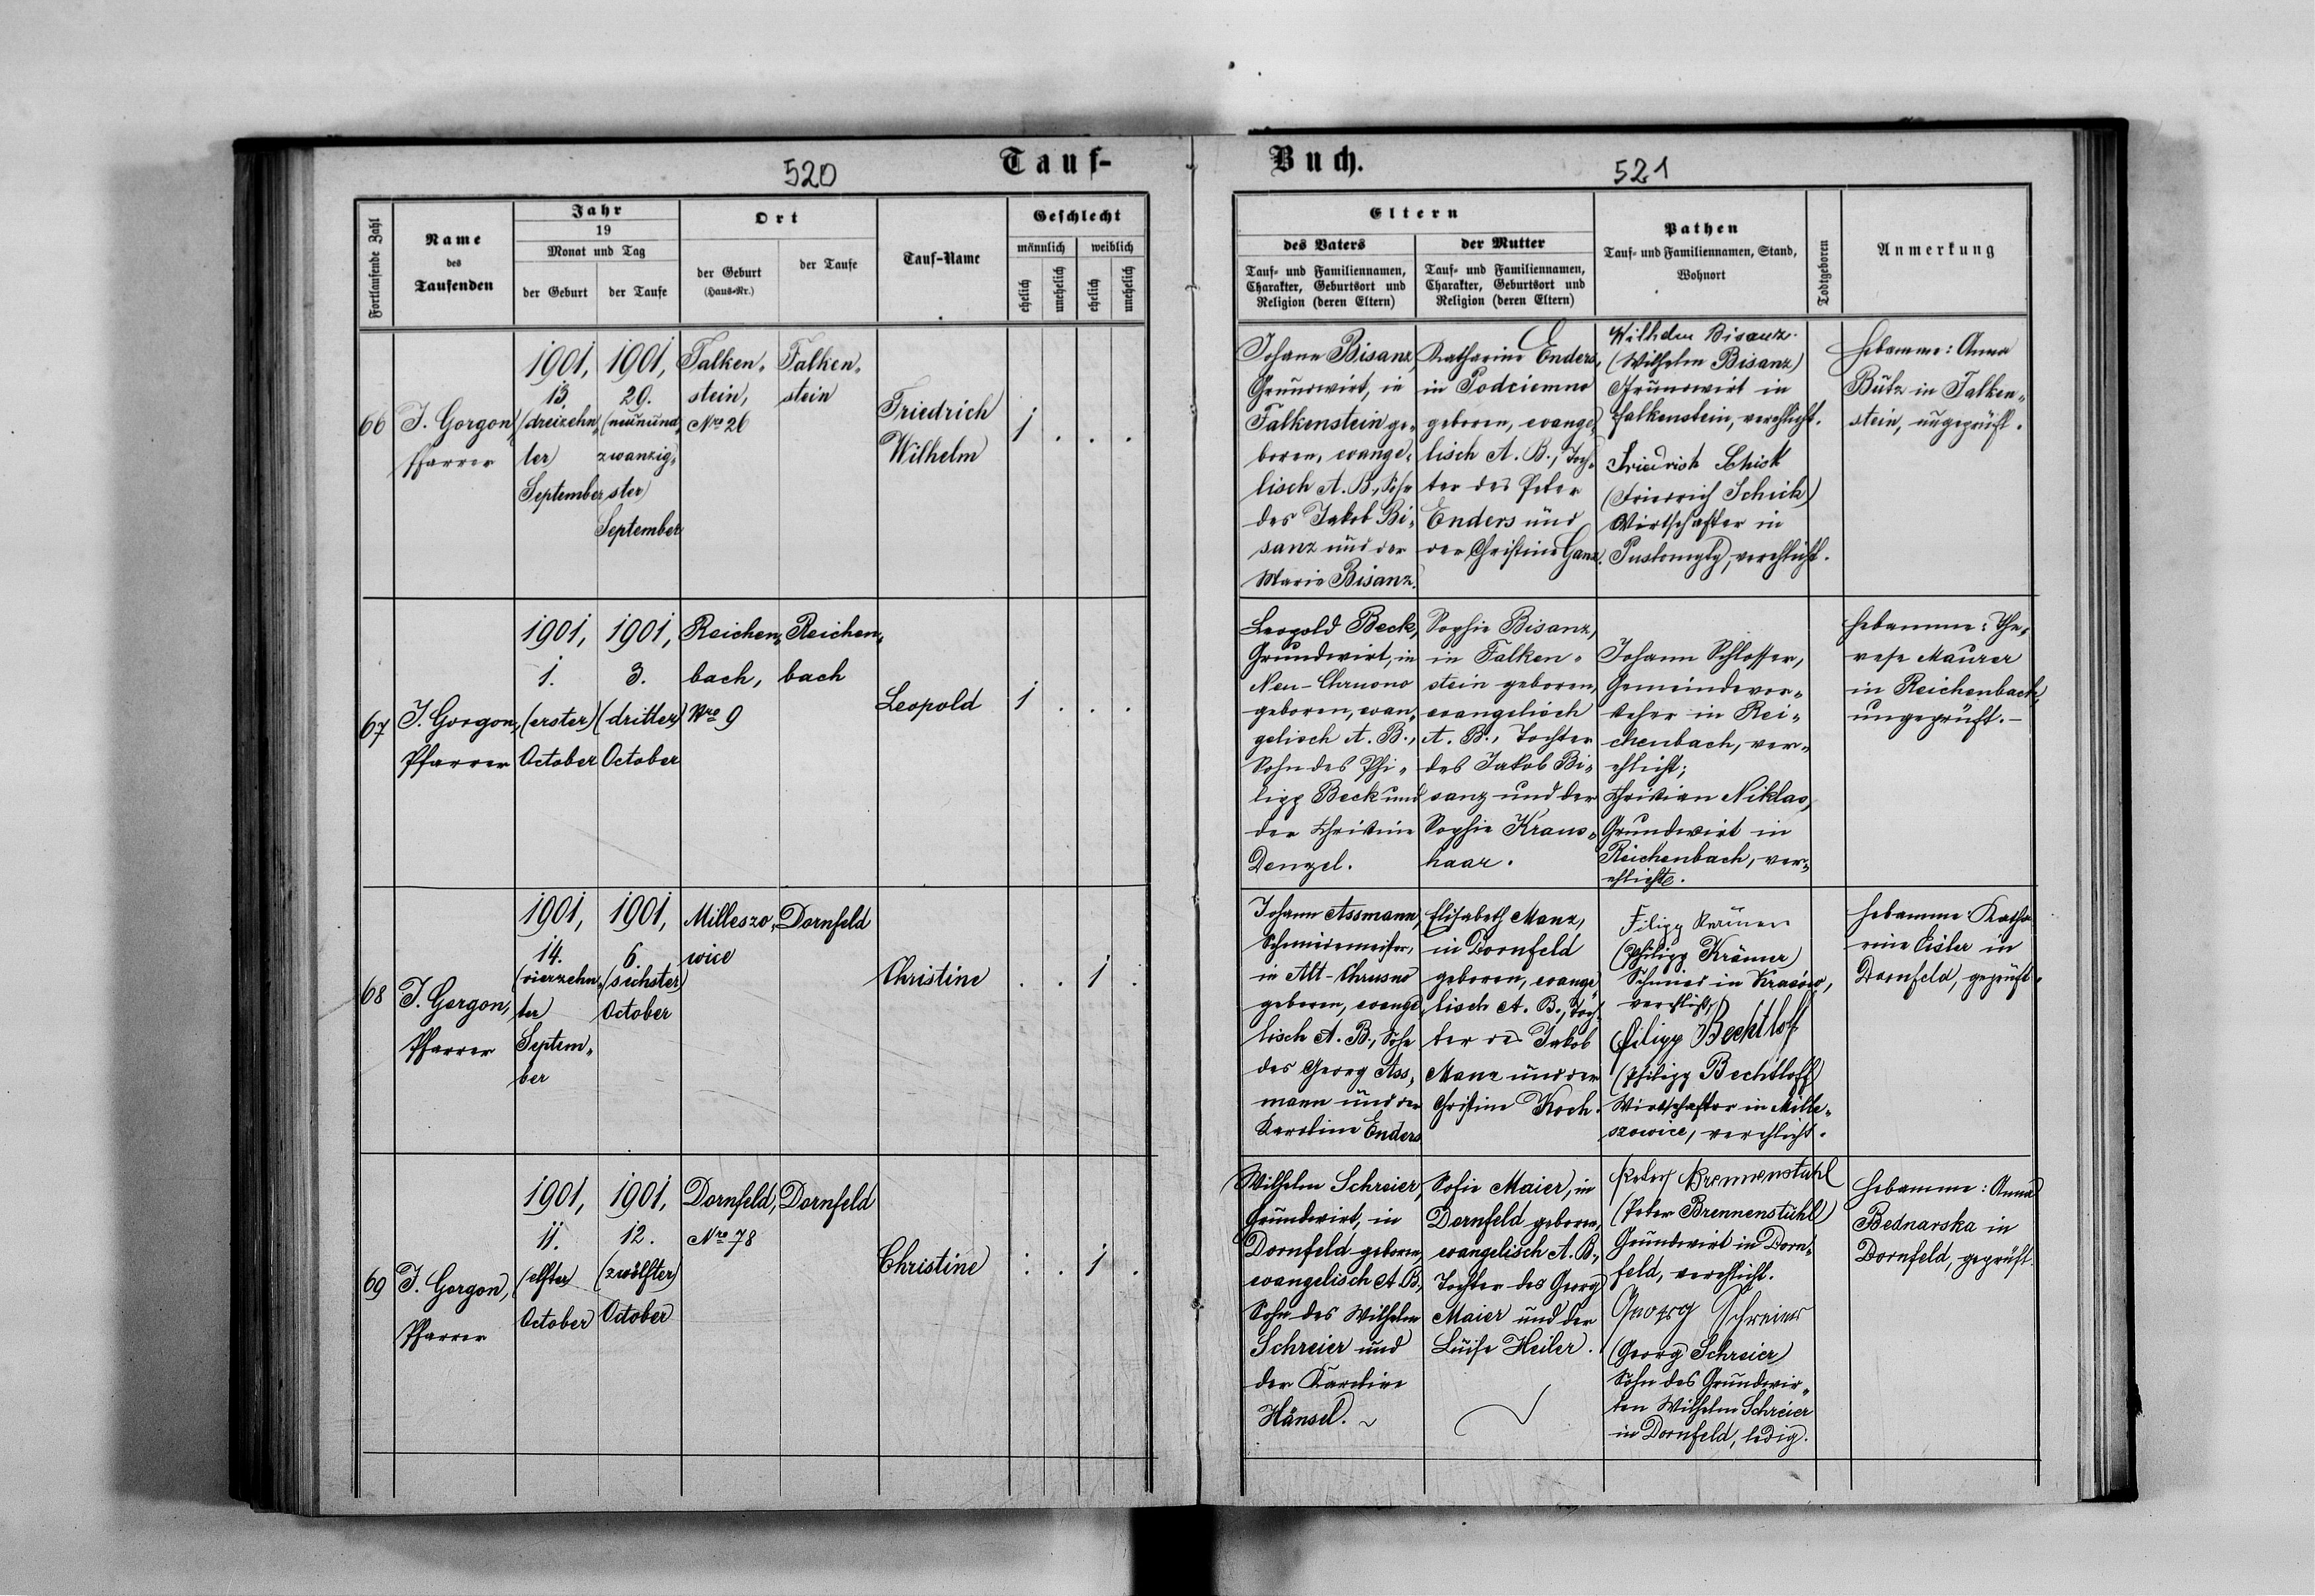 520
Tauf-
Buch.
521
Fortlaufende Zahl
Name
des
Taufenden
Jahr
19
Monat und Tag
der Geburt
der Taufe
Ort
der Geburt
(Haus-Nr.)
der Taufe
Tauf-Name
Geschlecht
männlich
weiblich
ehelich
unehelich
ehelich
unehelich
Eltern
des Vaters
Tauf- und Familiennamen,
Charakter, Geburtsort und
Religion (deren Eltern)
der Mutter
Tauf- und Familiennamen,
Charakter, Geburtsort und
Religion (deren Eltern)
Pathen
Tauf- und Familiennamen, Stand,
Wohnort
Todtgeboren
Anmerkung
66
J. Gorgon,
Pfarrer
1901,
13.
(dreizehn„
ter)
September
1901,
29.
(neunund„
zwanzig„
ster)
September
Falken„
stein,
Nro 26
Falken„
stein
Friedrich
Wilhelm
1 . . .
Johann Bisanz,
Grundwirt, in
Falkenstein ge„
boren, evange„
lisch A. B., Sohn
des Jakob Bi„
sanz und der
Marie Bisanz.
Katharine Enders,
in Podciemno
geboren, evange„
lisch A. B., Toch„
ter des Peter
Enders und
der Christine Ganz.
Wilhelm Bisanz.
(Wilhelm Bisanz)
Grundwirt in
Falkenstein, verehlicht.
Friedrich Schick
(Friedrich Schick)
Wirtschafter in
Pustomyty, verehlicht.
Hebamme: Anna
Bütz in Falken„
stein, ungeprüft.
67
J. Gorgon,
Pfarrer
1901,
1.
(erster)
October
1901,
3.
(dritter)
October
Reichen„
bach,
Nro 9
Reichen„
bach
Leopold
1 . . .
Leopold Beck,
Grundwirt, in
Neu-Chrusno
geboren, evan„
gelisch A. B.,
Sohn des Phi„
lipp Beck und
der Christine
Denzel.
Sophie Bisanz,
in Falken„
stein geboren,
evangelisch
A. B., Tochter
des Jakob Bi„
sanz und der
Sophie Kraus„
haar.
Johann Schlosser,
Gemeindevor„
steher in Rei„
chenbach, ver„
ehlicht;
Christian Niklas,
Grundwirt in
Reichenbach, ver„
ehlicht.
Hebamme: The„
rese Maurer
in Reichenbach,
ungeprüft.–
68
J. Gorgon,
Pfarrer
1901,
14.
(vierzehn„
ter)
Septem„
ber
1901,
6.
(sechster)
October
Milleszo„
wice
Dornfeld
Christine
. . 1 .
Johann Assmann,
Schmiedemeister,
in Alt-Chrusno
geboren, evange„
lisch A. B., Sohn
des Georg Ass„
mann und der
Karoline Enders
Elisabeth Manz,
in Dornfeld
geboren, evange„
lisch A. B., Toch„
ter des Jakob
Manz und der
Christine Koch.
Filipp
(Philipp Krämer)
Schmied in
verehlicht,
Filipp Bechtloff
(Philipp Bechtloff)
Wirtschafter in Mille„
szowice, verehlicht.
Hebamme: Katha„
rine Eisler in
Dornfeld, geprüft.
69
J. Gorgon,
Pfarrer
1901,
11.
(elfter)
October
1901,
12.
(zwölfter)
October
Dornfeld,
Nro 78
Dornfeld
Christine
. . 1 .
Wilhelm Schreier,
Grundwirt, in
Dornfeld geboren,
evangelisch A. B.,
Sohn des Wilhelm
Schreier und
der Karoline
Hänsel.
Sofie Maier, in
Dornfeld geboren,
evangelisch A. B.,
Tochter des Georg
Maier und der
Luise Heiler.
Peter Brennenstuhl
(Peter Brennenstuhl)
Grundwirt in Dorn„
feld, verehlicht.
Georg Schreier
(Georg Schreier)
Sohn des Grundwir„
ten Wilhelm Schreier
in Dornfeld, ledig.
Hebamme: Anna
Bednarska in
Dornfeld, geprüft.